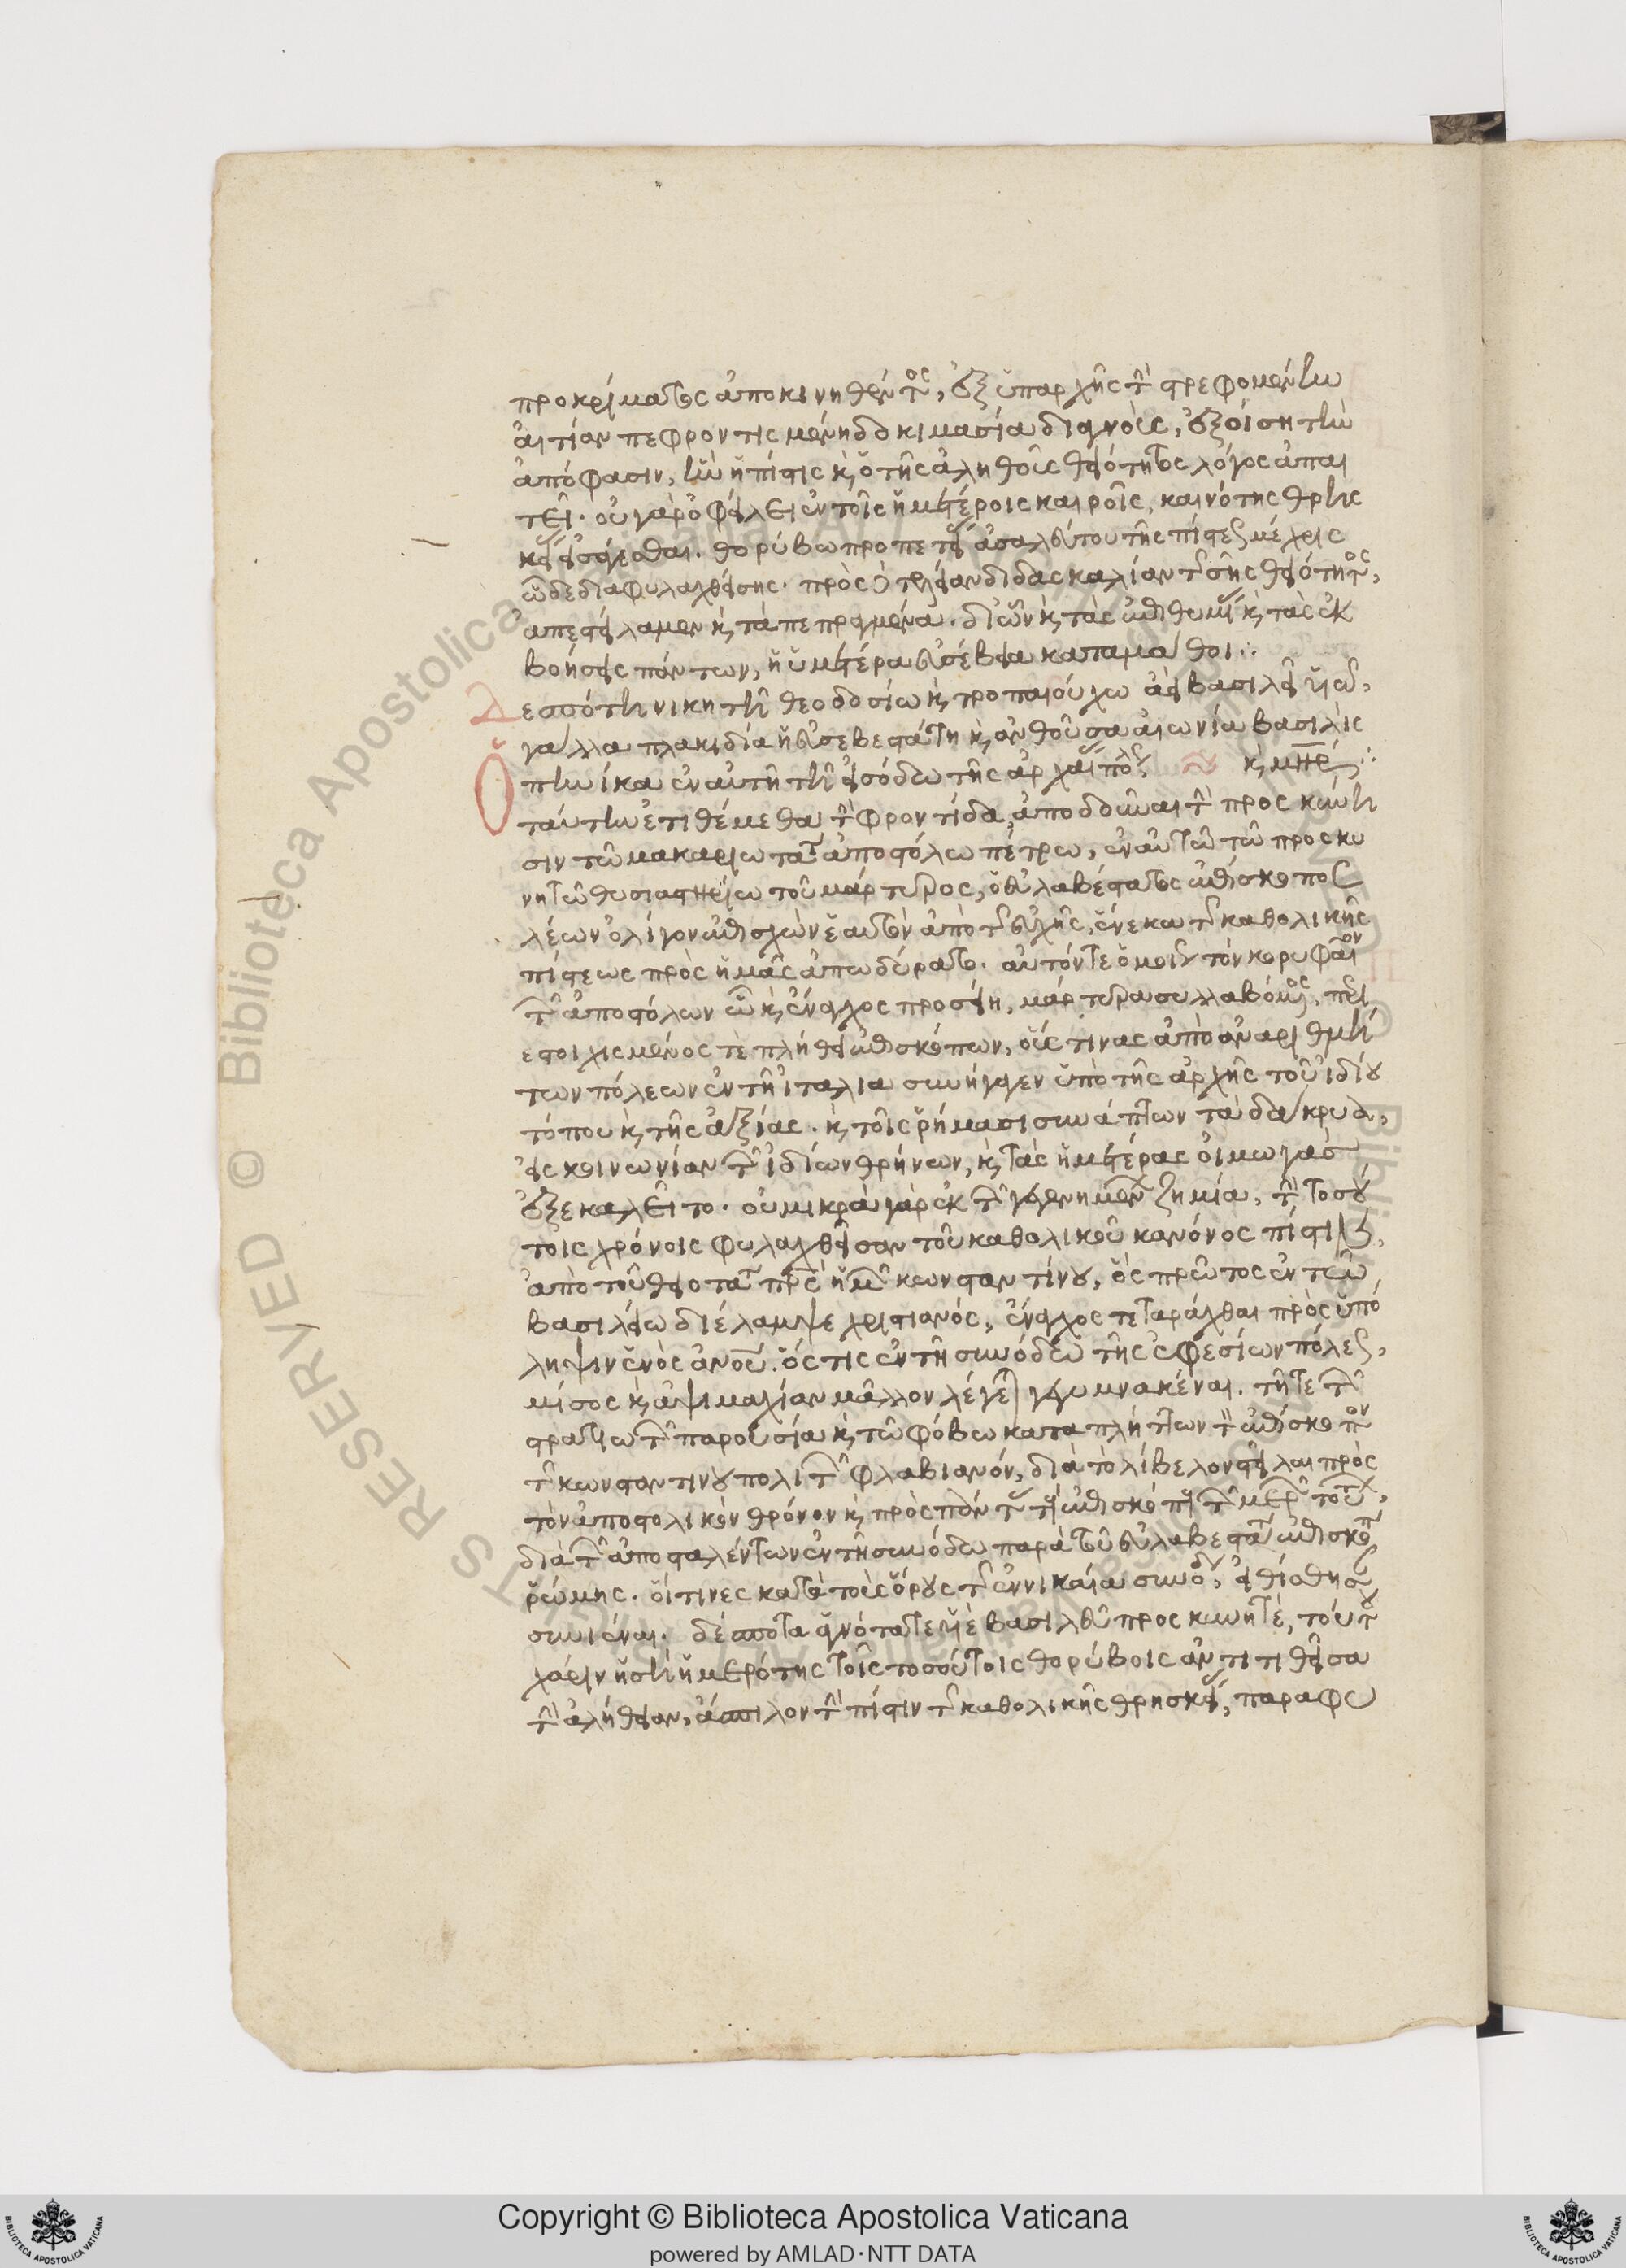 προκρίματος ἀποκινηθέντος, ἐξ ὑπαρχῆς τὴν στρεφομένην
αἰτίαν πεφροντισμένη δοκιμασία διαγνοὺς, ἐξοίση τὴν
ἀπόφασιν, ἣν ἡ πίστις καὶ ὁ τῆς ἀληθοῦς θεότητος λόγος ἀπαι
τεῖ. οὐ γὰρ ὀφείλει ἐν τοῖς ἡμετέροις καιροῖς, καινότης
θορύβω προπετ ἀσαλεύτου τῆς πίστεως μέχρις
ὧδε διαφυλαχθείσης. πρὸς διδασκαλίαν τῆς σῆς θειότητος,
ἀπεστείλαμεν καὶ τὰ πεπραγμένα. δι ὧν καὶ τὰς ἐπιθυμίας καὶ τὰς ἐκ
βοήσεις πάντων, ἡ ὑμετέρα εὐσέβεια καταμάθοι:
Δεσπότη νικητῆ θεοδοσίω καὶ τροπαιούχω ἀεὶ βασιλεῖ υἱῶ,
γάλλα πλακιδία ἡ εὐσεβεστάτη καὶ ἀνθοῦσα αἰωνία βασιλὶς
καὶ μήτηρ:
Ὁπηνίκα ἐν αὐτῆ τῆ εἰσόδω τῆς ἀρχαίας πόλεως
ταύτην ἐτιθέμεθα τὴν φροντίδα, ἀποδοῦναι τὴν προσκύνη
σιν τῶ μακαριωτάτω ἀποστόλω πέτρω, ἐν αὐτῶ τῶ προσκυ
νητῶ θυσιαστηρίω τοῦ μάρτυρος, ὁ εὐλαβέστατος ἐπίσκοπος
λέων ὀλίγον ἐπισχὼν ἑαυτὸν ἀπὸ τῆς εὐχῆς, ἕνεκα τῆς καθολικῆς
πίστεως πρὸς ἡμᾶς ἀπωδύρατο. αὐτόν τε ὁμοίως τὸν κορυφαῖον
τῶν ἀποστόλων ὧ καὶ ἔναγχος προσήει, μάρτυρα συλλαβόμενος, περι
εστοιχισμένος τε πλήθει ἐπισκόπων, οὕς τινας ἀπὸ ἀναριθμή
των πόλεων ἐν τῆ ἰταλία συνήγαγεν ὑπὸ τῆς ἀρχῆς τοῦ ἰδίου
τόπου καὶ τῆς ἀξίας. καὶ τοῖς ῥήμασι συνάπτων τὰ δάκρυα,
εἰς κοινωνίαν τῶν ἰδίων θρήνων, καὶ τὰς ἡμετέρας οἰμωγὰς
ἐξεκαλεῖτο. οὐ μικρὰ γὰρ ἐκ τῶν γεγενημένων ζημία, τὴν τοσού
τοις χρόνοις φυλαχθεῖσαν τοῦ καθολικοῦ κανόνος πίστιν,
ἀπὸ τοῦ θειοτάτου πατρὸς ἡμῶν κωνσταντίνου, ὃς πρῶτος ἐν τῶ
βασιλείω διέλαμψε χριστιανός, ἔναγχος τεταράχθαι πρὸς ὑπό
ληψιν ἑνὸς ἀνθρώπου. ὅς τις ἐν τῆ συνόδω τῆς ἐφεσίων πόλεως,
μῖσος καὶ ἁψιμαχίαν μᾶλλον λέγεται γεγυμνακέναι. τῆ τε τῶν
στρατιωτῶν παρουσία καὶ τῶ φόβω καταπλήττων τὸν ἐπίσκοπον
τῆς κωνσταντινουπολιτῶν φλαβιανόν, διὰ τὸ λίβελον στεῖλαι πρὸς
τὸν ἀποστολικὸν θρόνον καὶ πρὸς πάντας τοὺς ἐπισκόπους τῶν μερῶν τούτων,
διὰ τῶν ἀποσταλέντων ἐν τῆ συνόδω παρὰ τοῦ εὐλαβεστάτου ἐπισκόπου
ῥώμης. οἵτινες κατὰ τοὺς ὅρους τῆς ἐν νικαία συνόδου, εἰθίσθησαν
συνιέναι. δέσποτα ἁγνότατε υἱὲ βασιλεῦ προσκυνητέ, τούτου
χάριν ἡ σὴ ἡμερότης τοῖς τοσούτοις θορύβοις ἀντιτιθεῖσα
τὴν ἀλήθειαν, ἄσπιλον τὴν πίστιν τῆς καθολικῆς θρησκείας, παραφυ